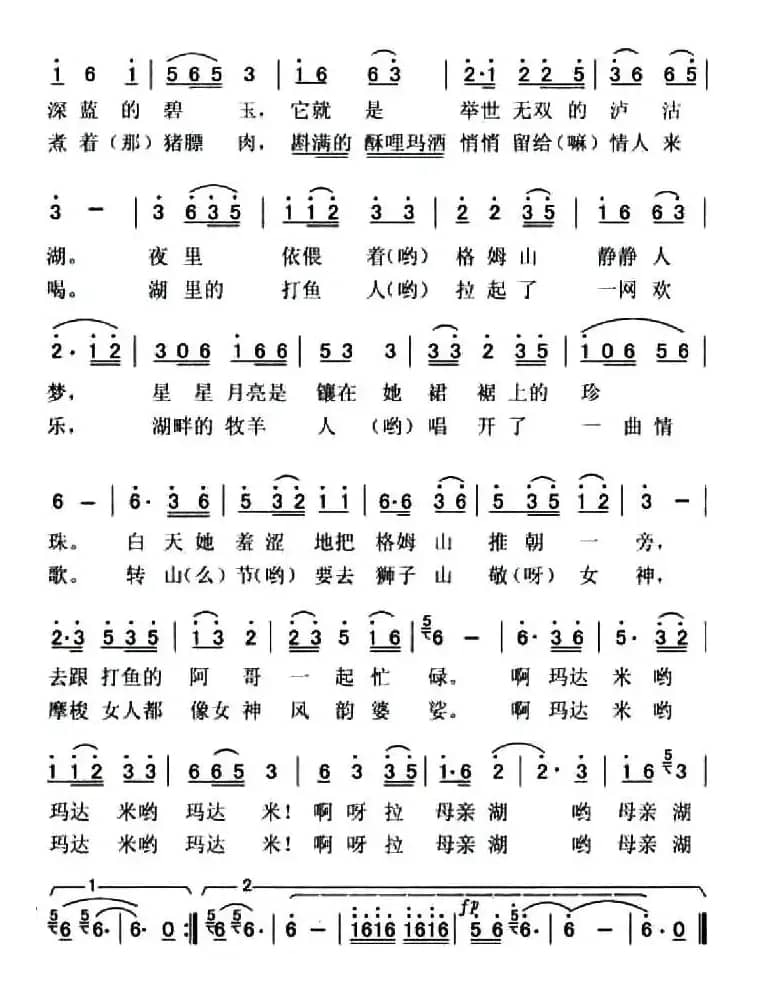 1 6 1 | 5 6 5 3 | 1 6 6 3 | 2·1 2 2 5 | 3 6 6 5 |
深蓝的碧玉，它就是举世无双的泸沽
煮着(那)猪膘肉，斟满的酥哩玛酒悄悄留给(嘛)情人来
3 － | 3 6 3 5 | 1 1 2 3 3 | 2 2 3 5 | 1 6 6 3 |
湖。夜里依偎着(哟)格姆山静静人
喝。湖里的打鱼人(哟)拉起了一网欢
2· 1 2 | 3 0 6 1 6 6 | 5 3 3 | 3 3 2 3 5 | 1 0 6 5 6 |
梦，星星月亮是镶在她裙裾上的珍
乐，湖畔的牧羊人(哟)唱开了一曲情
6 － | 6· 3 6 | 5 3 2 1 1 | 6·6 3 6 | 5 3 5 1 2 | 3 － |
珠。白天她羞涩地把格姆山推朝一旁，
歌。转山(么)节(哟)要去狮子山敬(呀)女神，
2·3 5 3 5 | 1 3 2 | 2 3 5 1 6 | 5 6 － | 6· 3 6 | 5· 3 2 |
去跟打鱼的阿哥一起忙碌。啊玛达米哟
摩梭女人都像女神风韵婆娑。啊玛达米哟
1 1 2 3 3 | 6 6 5 3 | 6 3 3 5 | 1·6 2 | 2· 3 | 1 6 5 3 |
玛达米哟玛达米！啊呀拉母亲湖哟母亲湖
玛达米哟玛达米！啊呀拉母亲湖哟母亲湖
1 2
5 6 5 6· | 6· 0 :| 5 6 5 6· | 6 － | 1616 1616 | fp 5 6 5 6· | 6 － | 6· 0 |